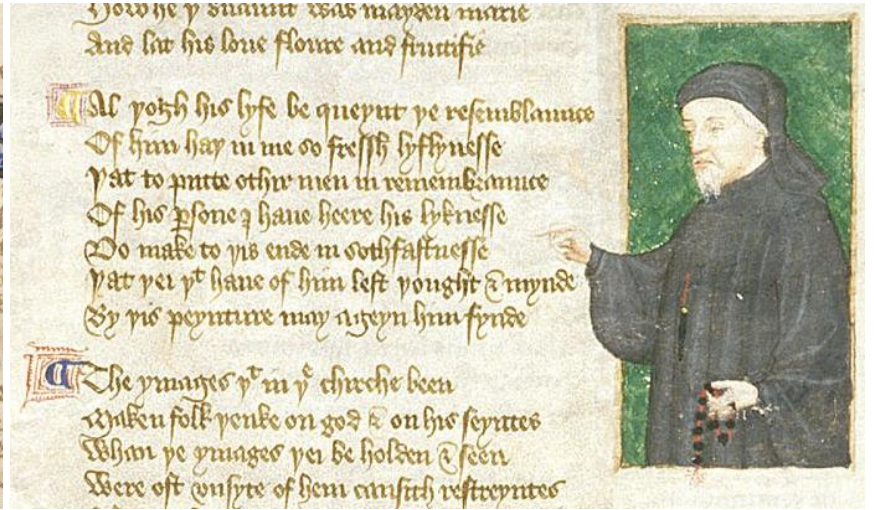 How he þi seruaunt was mayden marie
And lat his loue floure and fructifie
Al þogh his lyfe be queynt þe resemblaunce
Of him haþ in me so fressh lyflynesse
Þat to putte othir men in remembraunce
Of his ꝑsone I haue heere his lyknesse
Do make to þis ende in sothfastnesse
Þat þei þᵗ haue of him left þought & mynde
By þis peynture may ageyn him fynde
The ymages þᵗ in þᵉ chirche been
Maken folk þenke on god & on his seyntes
Whan þe ymages þei be holden & seen
Were oft vnsyte of hem causith restreyntes